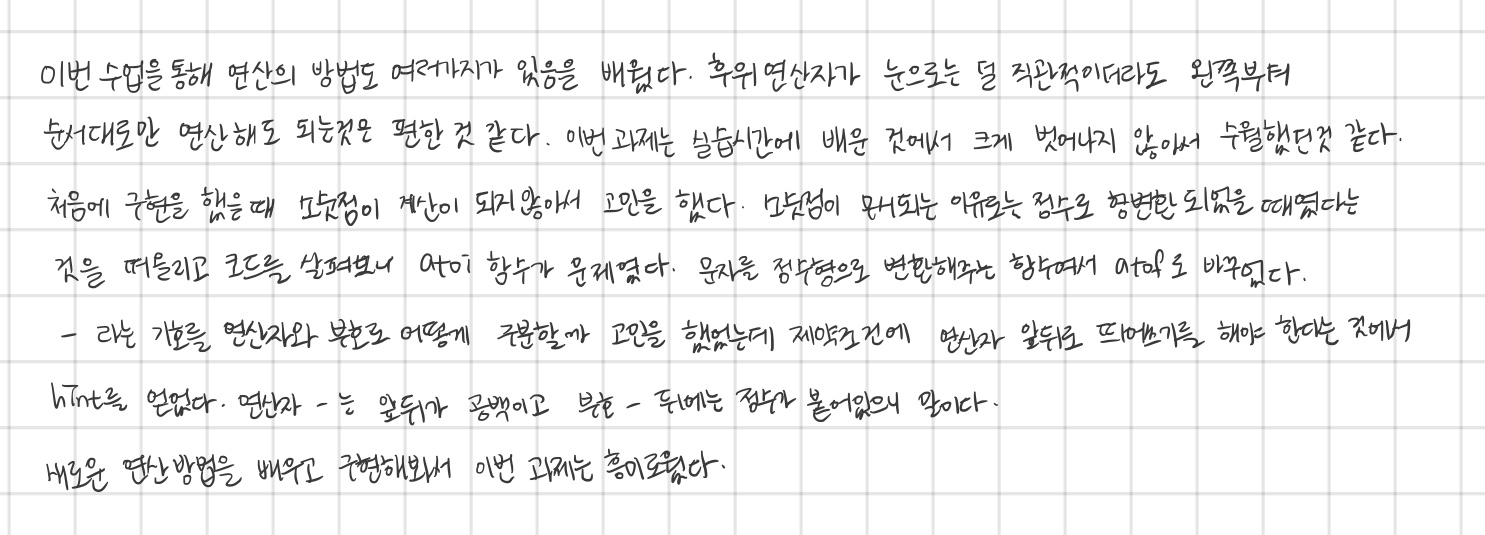 이번 수업을 통해 연산의 방법도 여러가지가 있음을 배웠다. 후위연산자가 눈으로는 덜 직관적이더라도 왼쪽부터
순서대로만 연산해도 되는것은 편한 것 같다. 이번 과제는 실습시간에 배운 것에서 크게 벗어나지 않아서 수월했던것 같다.
처음에 구현을 했을 때 소숫점이 계산이 되지않아서 고민을 했다. 소숫점이 무시되는 이유로는 정수로 형변환 되었을 때였다는
것을 떠올리고 코드를 살펴보니 atoi 함수가 문제였다. 문자를 정수형으로 변환해주는 함수여서 atof로 바꾸었다.
- 라는 기호를 연산자와 부호로 어떻게 구분할까 고민을 했었는데 제약조건에 연산자 앞뒤로 띄어쓰기를 해야 한다는 것에서
hint를 얻었다. 연산자 - 는 앞뒤가 공백이고 부호 - 뒤에는 정수가 붙어있으니 말이다.
새로운 연산방법을 배우고 구현해봐서 이번 과제는 흥미로웠다.